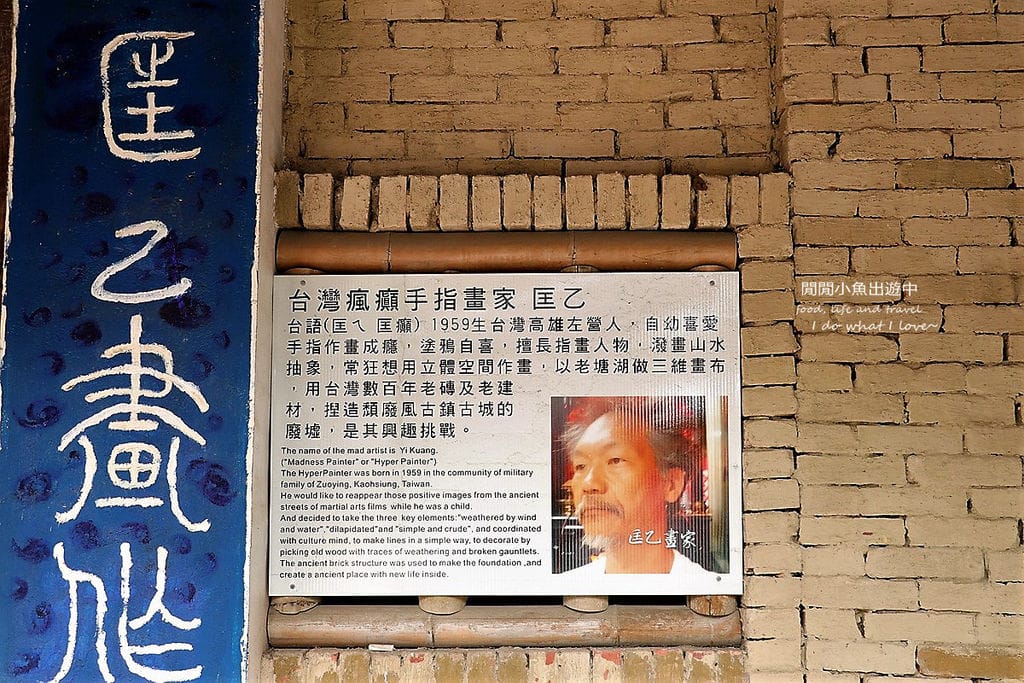 匡乙畫作
台灣瘋癲手指畫家 匡乙
台語(匡ㄟ 匡癲) 1959生台灣高雄左營人，自幼喜愛
手指作畫成癮，塗鴉自喜，擅長指畫人物，潑畫山水
抽象，常狂想用立體空間作畫，以老塘湖做三維畫布
，用台灣數百年老磚及老建
材，捏造頹廢風古鎮古城的
廢墟，是其興趣挑戰。
The name of the mad artist is Yi Kuang.
("Madness Painter" or "Hyper Painter")
The HyperPainter was born in 1959 in the community of military
family of Zuoying, Kaohsiung, Taiwan.
He would like to reappear those positive images from the ancient
streets of martial arts films while he was a child.
And decided to take the three key elements:"weathered by wind
and water","dilapidated"and "simple and crude", and coordinated
with culture mind, to make lines in a simple way, to decorate by
picking old wood with traces of weathering and broken gauntlets.
The ancient brick structure was used to make the foundation ,and
create a ancient place with new life inside.
匡乙畫家
閒閒小魚出遊中
food, life and travel
I do what I love~